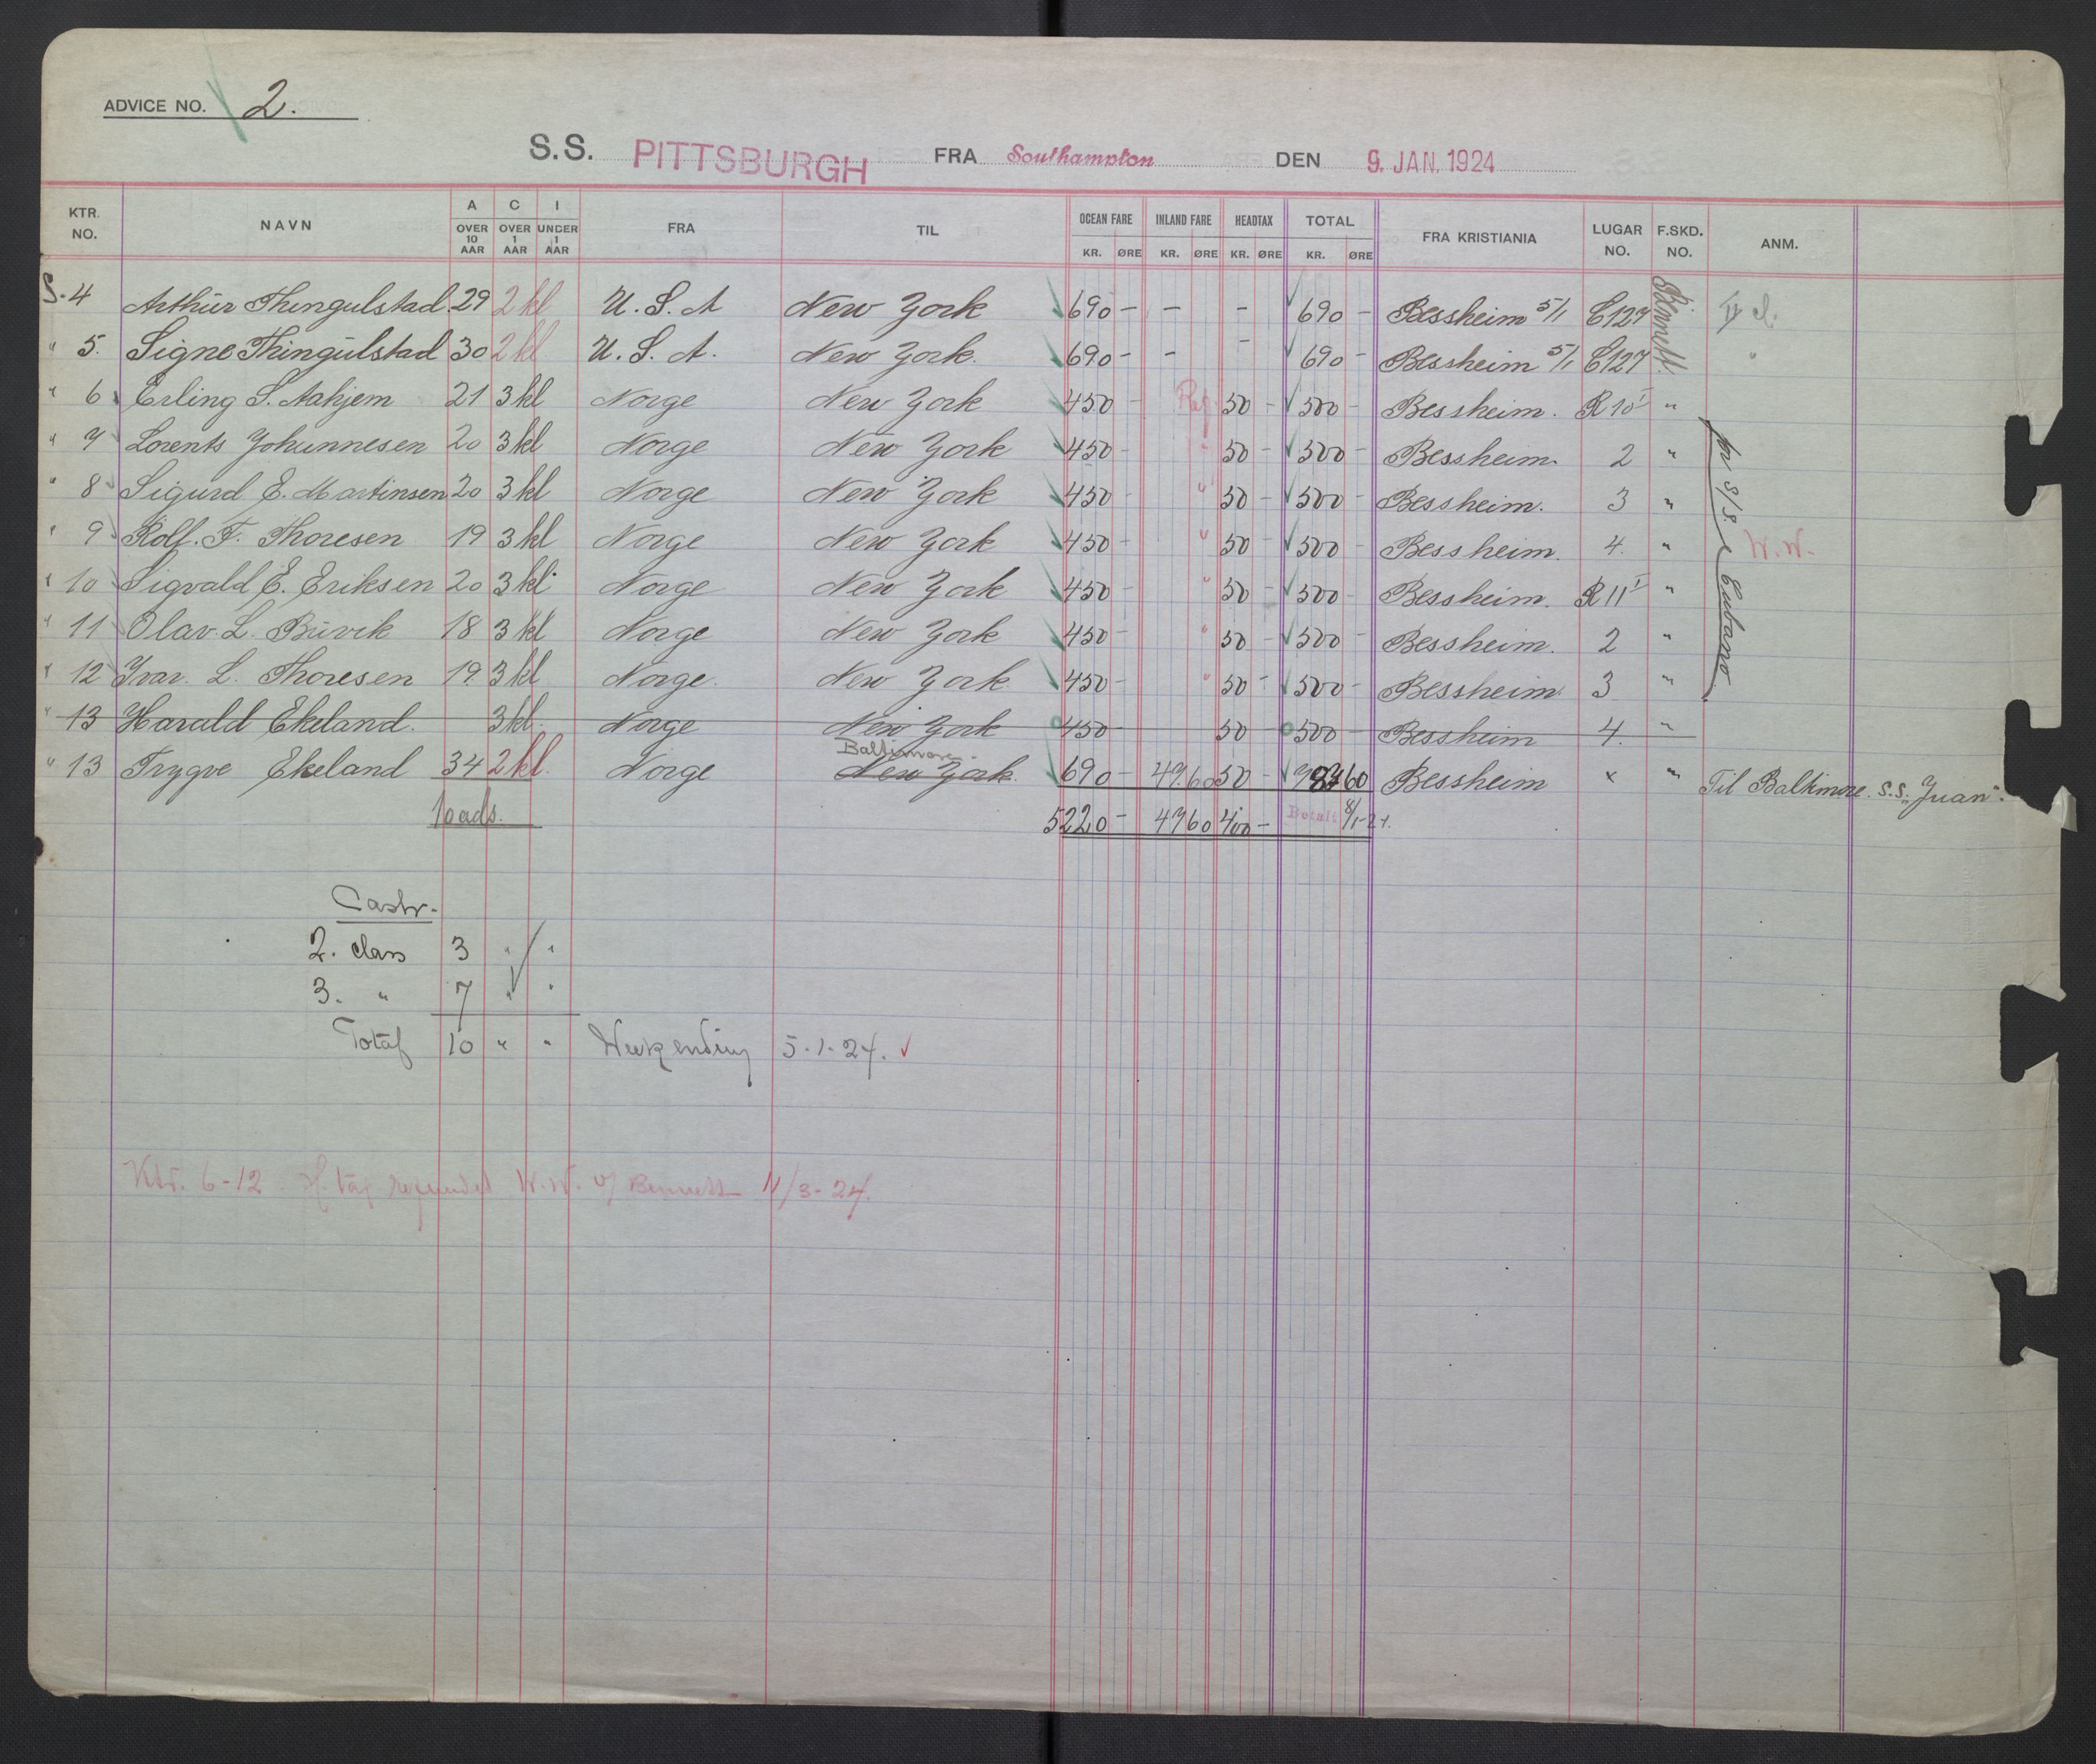 ADVICE NO. 2.
S.S. PITTSBURGH FRA Southampton DEN 9. JAN. 1924
KTR. NO. NAVN A OVER 10 AAR C OVER 1 AAR I UNDER 1 AAR FRA TIL OCEAN FARE KR. ØRE INLAND FARE KR. ØRE HEADTAX KR. ØRE TOTAL KR. ØRE FRA KRISTIANIA LUGAR NO. F.SKD. NO. ANM.
S. 4 Arthur Thingulstad 29 2 kl U. S. A New York 690 - - - 690 - Bessheim 5/1 C127 Bennett. II cl.
" 5. Signe Thingulstad 30 2 kl U. S. A. New York. 690 - - - 690 - Bessheim 5/1 C127 "
" 6 Erling S. Aahjem 21 3 kl Norge New York 450 - Ref. 50 - 500 - Bessheim. R 10 I "
" 7 Lorents Johannesen 20 3 kl Norge New York 450 - " 50 - 500 - Bessheim. 2 "
" 8 Sigurd E. Martinsen 20 3 kl Norge New York 450 - " 50 - 500 - Bessheim. 3 "
" 9 Rolf. F. Thoresen 19 3 kl Norge New York 450 - " 50 - 500 - Bessheim. 4. " W.W.
" 10 Sigvald E. Eriksen 20 3 kl. Norge New York 450 - " 50 - 500 - Bessheim. R 11 I "
" 11 Olav. L. Buvik 18 3 kl Norge New York 450 - " 50 - 500 - Bessheim. 2 "
" 12 Ivar. L. Thoresen 19 3 kl Norge. New York 450 - " 50 - 500 - Bessheim 3 "
for S/S. "Cubano".
" 13 Harald Ekeland. 3 kl. Norge New York 450 50 500 - Bessheim 4. "
Baltimore.
" 13 Trygve Ekeland 34 2 kl. Norge New York. 690 - 49 60 50 - 60 Bessheim x " Til Baltimore. S.S. "Juan".
10 ads. 5220 - 49 60 400 - Betalt 8/1-24.
Castr.
2. class 3 " "
3. " 7 " "
Total 10 " " Week ending 5-1-24.
Ktr. 6-12 H. tax refunded W.W. Bennett 11/3-24.